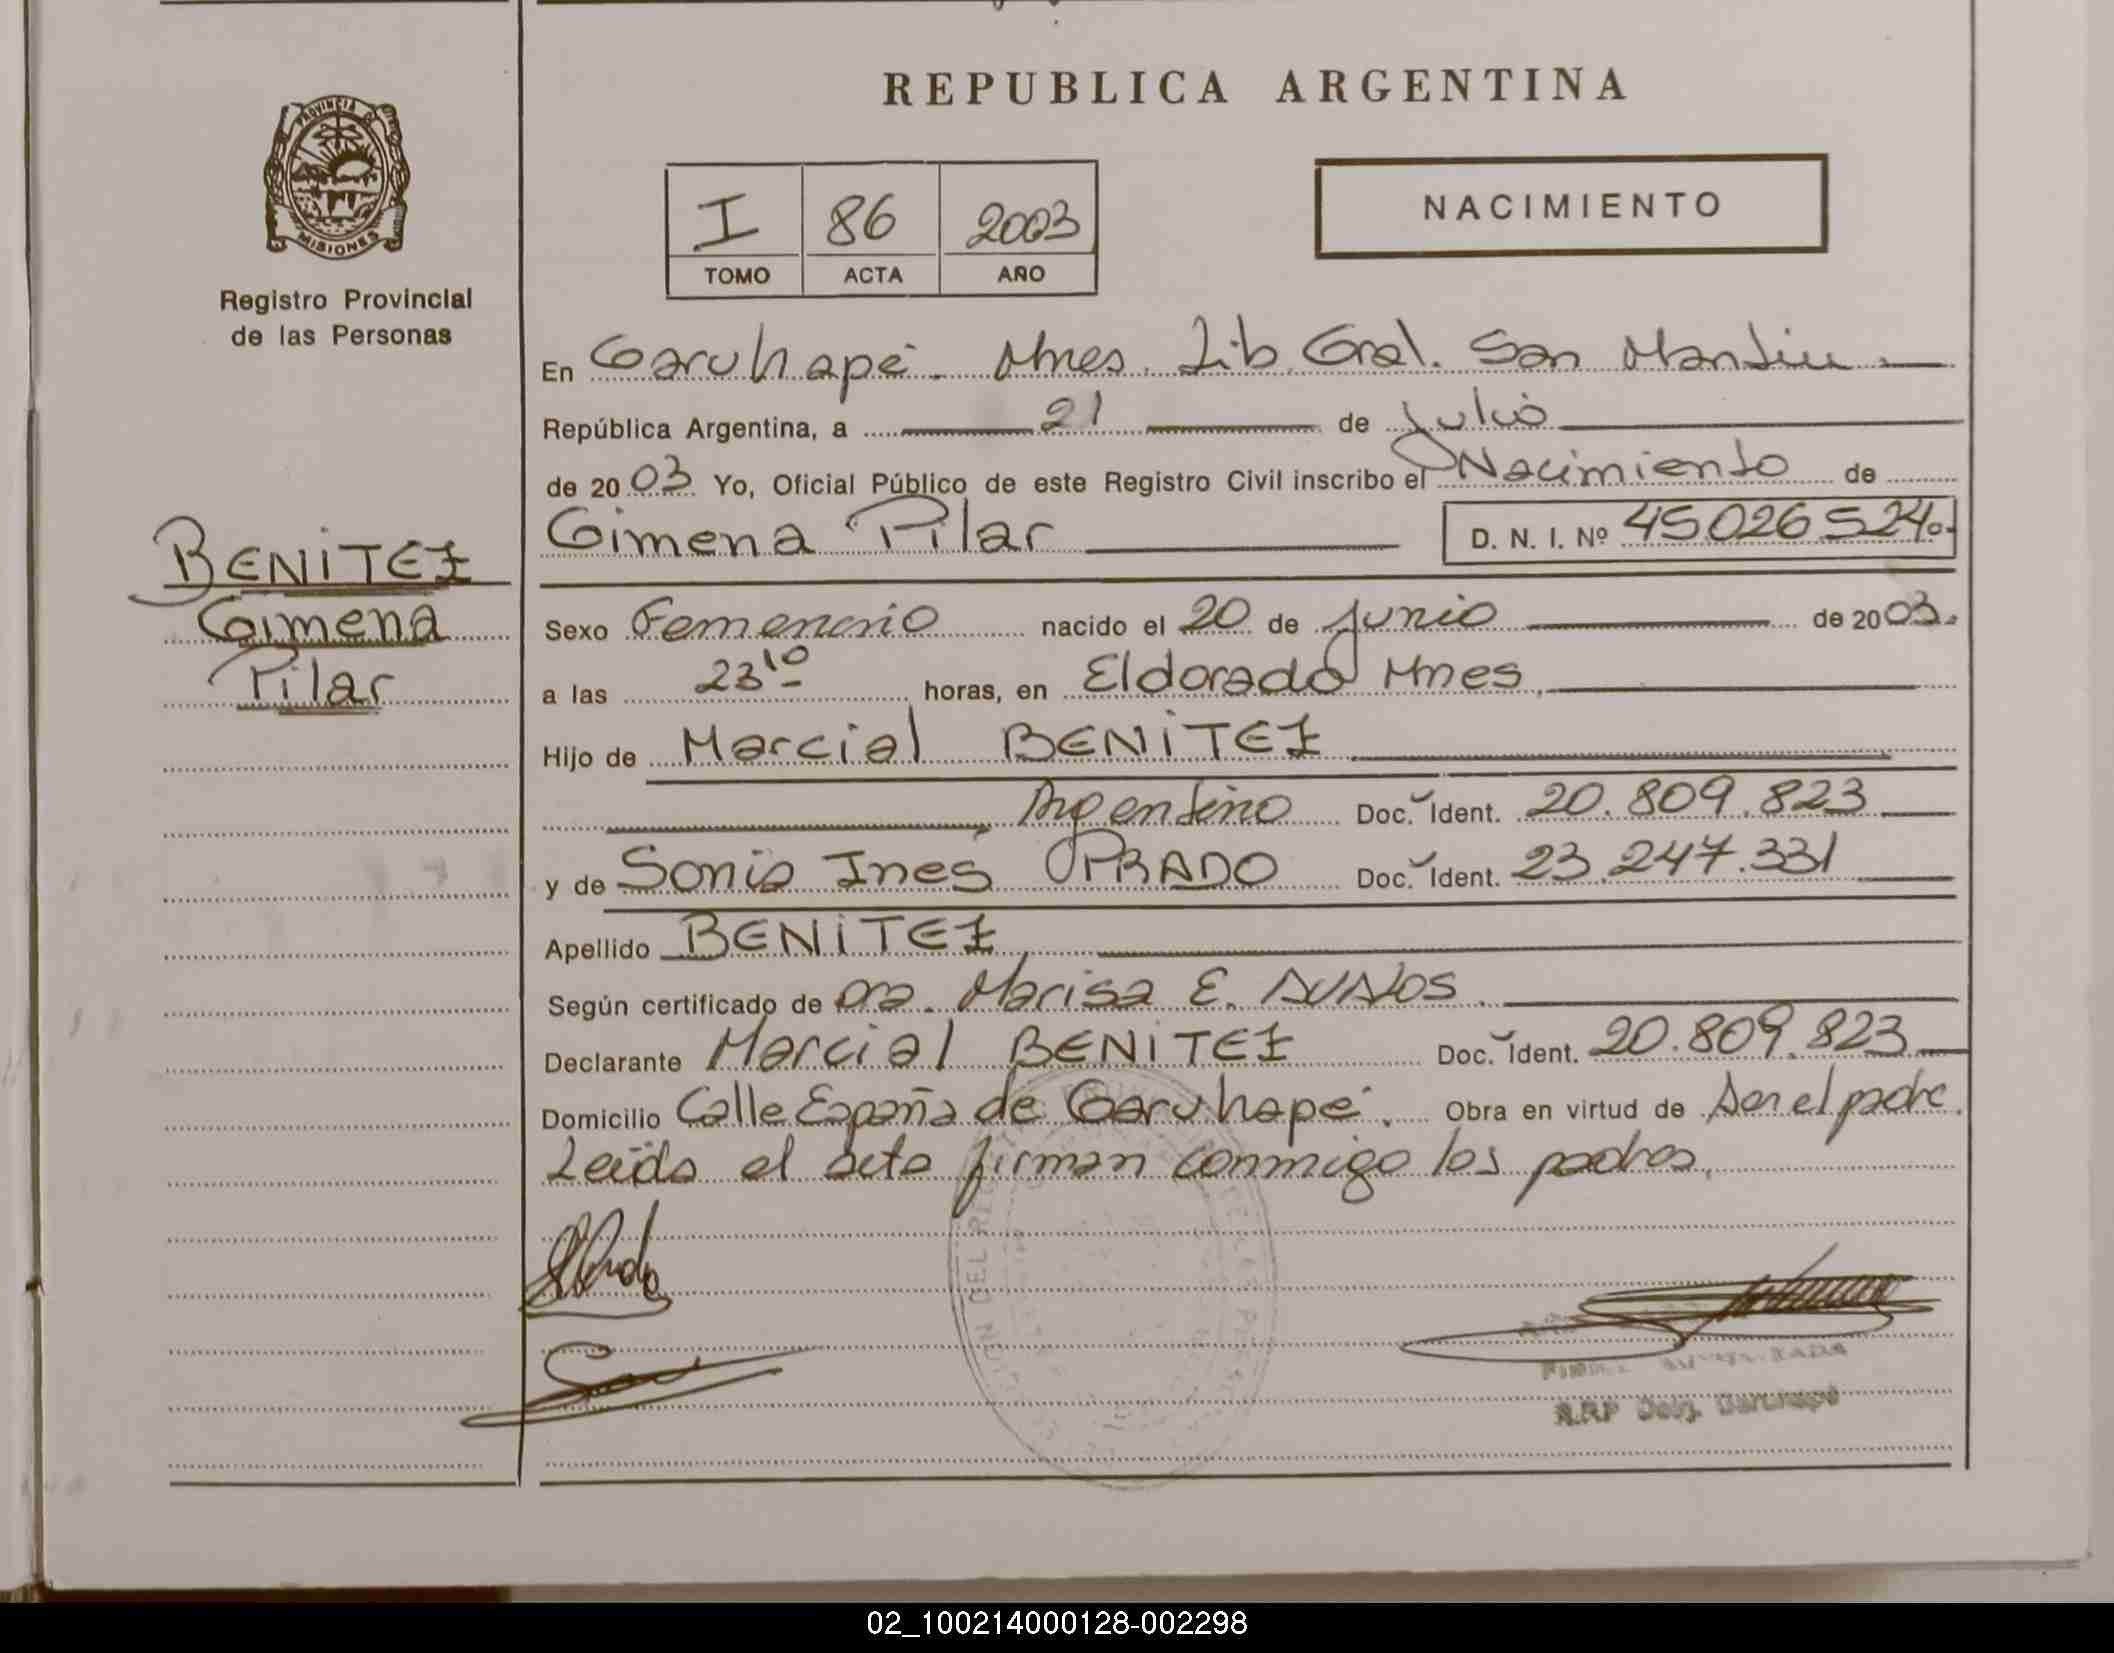 REPUBLICA ARGENTINA
PROVINCIA DE
MISIONES
Registro Provincial
de las Personas
I 86 2003
TOMO ACTA AÑO
NACIMIENTO
En Garuhapé. Mnes. Lib. Gral. San Martín.
República Argentina, a 21 de Julio
de 2003 Yo, Oficial Público de este Registro Civil inscribo el Nacimiento de
Gimena Pilar D. N. I. Nº 45026524.
BENITEZ
Gimena
Pilar
Sexo Femenino nacido el 20 de Junio de 2003.
a las 23 10 horas, en Eldorado Mnes.
Hijo de Marcial BENITEZ
Argentino Doc. Ident. 20.809.823
y de Sonia Ines PRADO Doc. Ident. 23.247.331
Apellido BENITEZ
Según certificado de Dra. Marisa E. AVALOS.
Declarante Marcial BENITEZ Doc. Ident. 20.809.823
Domicilio Calle España de Garuhapé. Obra en virtud de Ser el padre.
Leída el acta firman conmigo los padres.
R.R.P Deleg. Garuhapé
02_100214000128-002298